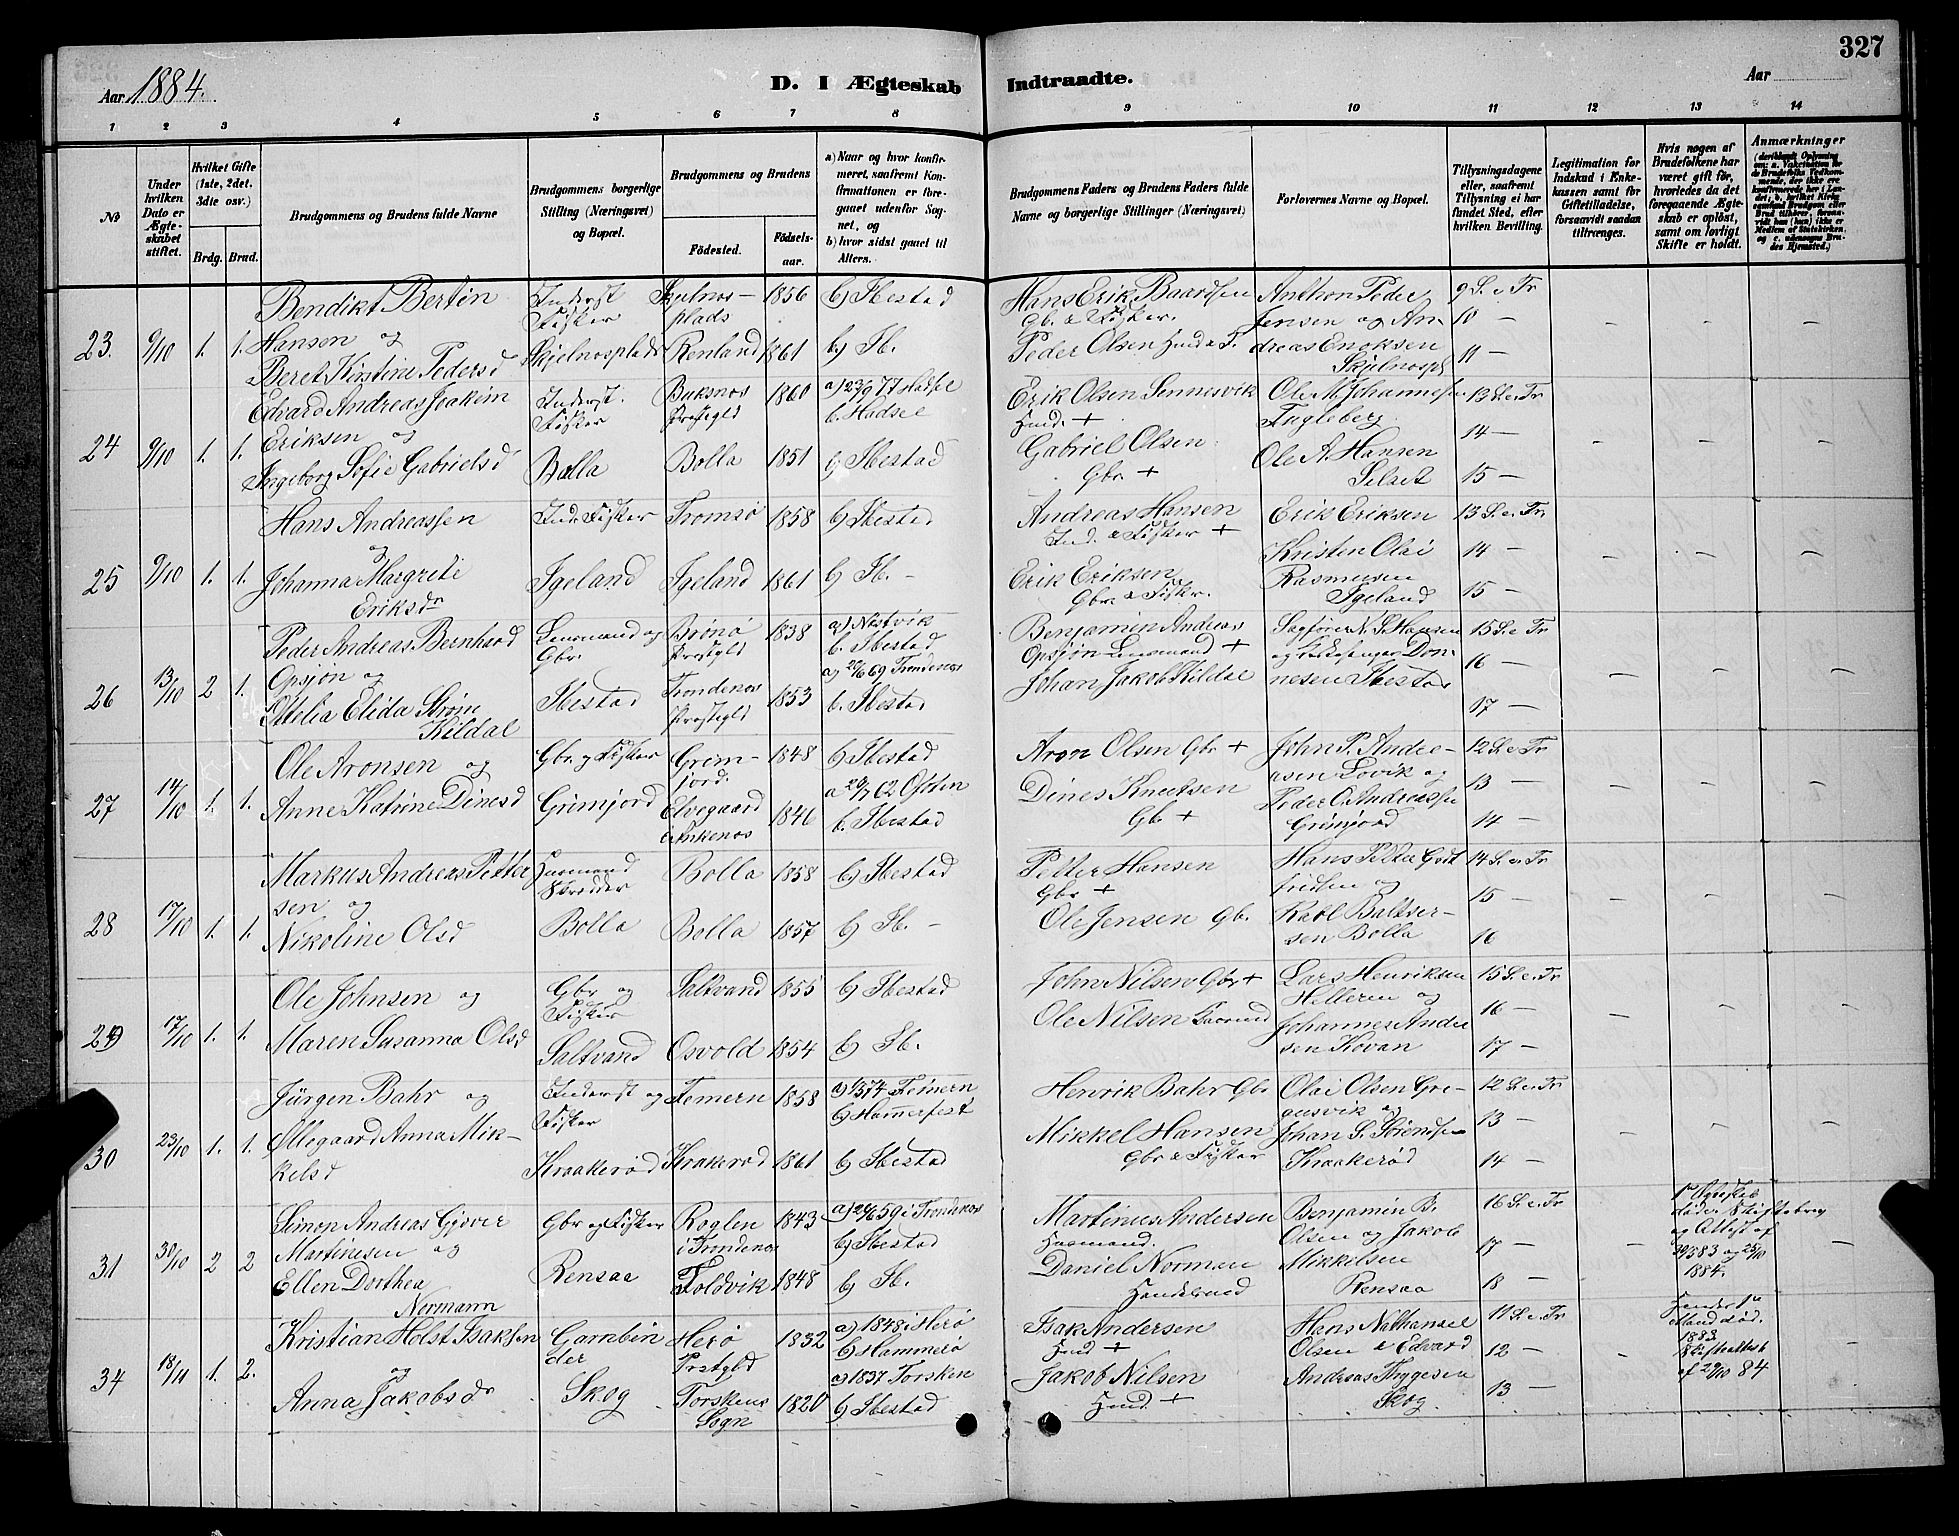 327
Aar 1884.
D. I Ægteskab Indtraadte.
Aar
1 2 3 4 5 6 7 8 9 10 11 12 13 14
№
Under hvilken Dato er Ægteskabet stiftet.
Hvilket Gifte (1ste, 2det. 3die osv.)
Brdg. Brud.
Brudgommens og Brudens fulde Navne
Brudgommens borgerlige Stilling (Næringsvei) og Bopæl.
Brudgommens og Brudens
Fødested. Fødsels-aar.
a) Naar og hvor konfirmeret, saafremt Konfirmationen er foregaaet udenfor Sognet, og
b) hvor sidst gaaet til Alters.
Brudgommens Faders og Brudens Faders fulde Navne og borgerlige Stillinger (Næringsvei)
Forlovernes Navne og Bopæl.
Tillysningsdagene eller, saafremt Tillysning ei har fundet Sted, efter hvilken Bevilling.
Legitimation for Indskud i Enkekassen samt for Giftetilladelse, forsaavidt saadan tiltrænges.
Hvis nogen af Brudefolkene har været gift før, hvorledes da det foregaaende Ægteskab er opløst, samt om lovligt Skifte er holdt.
Anmærkninger
23. 9/10 1. 1.
Bendikt Bertin Hansen og
Beret Kirstine Pedersd
Inderst Fisker
Skjelnosplads
Skjelnosplads 1856 b) Ibestad
Renland 1861 b) Ib.
Hans Erik Baardsen
Gb. & Fisker.
Peder Olsen Husd & F.
Anthon Peder Jensen og Andreas Enoksen
Skjelnospl
9 S. e. Tr
10 —
11 —
24 9/10 1. 1.
Edvard Andreas Joakim Eriksen og
Ingeborg Sofie Gabrielsd
Inderst. Fisker
Bolla
Buksnes Prstgld 1860 a) 23/9 77 Hadsel
b. Hadsel
Bolla 1851 b) Ibestad
Erik Olsen Sennesvik
Husd. +
Gabriel Olsen
Gbr. +
Ole M. Johannesen
Ingleberg
Ole A. Hansen
Selset
13 S. e. Tr
14 —
15 —
25 9/10 1. 1.
Hans Andreassen
og
Johanna Margrete
Eriksdr
Ind. Fisker
Igeland
Tromsø 1858 b) Ibestad
Igeland 1861 b) Ib. —
Andreas Hansen
Ind. & Fisker +
Erik Eriksen
Gbr. & Fisker.
Erik Eriksen
Kristen Olai
Rasmusen
Igeland
13 S. e. Tr
14 —
15 —
26 13/10 2 1.
Peder Andreas Bernhard
Opsjøn og
Ottelia Elida Strøm
Kildal
Lensmand og
Gbr.
Ibestad
Brønø Prstgld 1838 a) Nestvik
b. Ibestad
Trondenes Prstgld 1853 a) 20/6 69 Trondenes
b. Ibestad
Benjamin Andreas
Opsjøn Lensmand +
Johan Jakob Kildal
Sagfører N. S. Hansen
og Kirkesanger Donnesen Ibestad
15 S. e. Tr
16 —
17 —
27 14/10 1. 1.
Ole Aronsen og
Anne Katrine Dinesd
Gbr. og Fisker
Grimjord
Grimjord. 1848 b) Ibestad
Elvegaard i Ankenes 1846 a 20/7 62 Ofoten
b. Ibestad
Aron Olsen Gbr +
Dines Knutsen
Gb +
John P. Andreasen Lovik og
Peder O. Andreassen
Grimjord
12 S. e. Tr
13 —
14 —
28 17/10 1. 1.
Markus Andreas Pettersen og
Nikoline Olsd
Husmand
Skredder
Bolla
Bolla 1858 b) Ibestad
Bolla 1857 b) Ib. —
Petter Hansen
Gbr +
Ole Jensen Gb.
Hans Petter Godtfridsen og
Karl Baltsersen Bolla
14 S. e. Tr
15 —
16
29 17/10 1. 1.
Ole Johnsen og
Maren Susanna Olsd
Gbr og
Fisker
Saltvand
Saltvand 1855 b) Ibestad
Osvold 1854 b) Ib.
John Nilsen Gbr +
Ole Nilsen
Lars Henriksen
Helleren og
Johannes Andersen Kovan
15 S. e. Tr
16 —
17 —
30 23/10 1. 1.
Jürgen Bahr og
Øllegaard Anna Mikkelsd
Inderst og
Fisker
Kraakerød
Femern 1858 Femern
b) Hammerfest
Kraakerød 1861 b) Ibestad
Henrik Bahr Gbr
Mikkel Hansen
Gbr & Fisker
Olai Olsen Gregusvik og
Johan S. Sørendsen
Kraakerød
12 S. e. Tr
13 —
14 —
31 30/10 2 2
Simon Andreas Gjøver
Martinesen og
Ellen Dorthea
Normann
Gbr og Fisker
Rensaa
Roglen i Trondenes 1843 a) 20/6 59 i Trondenes
b) Ibestad
Foldvik 1848 b) Ib.
Martinus Andersen
Husmand.
Daniel Norman
Handelsmd
Benjamin B.
Olsen og Jakob
Mikkelsen
Rensaa
16 S. e. Tr
17 —
18 —
1ste Ægteskab
Skiftebrev
og Attest af
83 og 25/10
1884.
34 18/11 1. 2.
Kristian Holst Isaksen
og
Anna Jakobsdr
Garnbinder
Skog
Herø Prstgld 1832 a) 1848 i Herø
b) Hammerø
Torskens Sogn 1820 a) 1837 Torsken
b) Ibestad
Isak Andersen
Husd +
Jakob Nilsen
Husd. +
Hans Nathanael
Olsen & Edvard
Andreas Thygesen
Skog
11 S. e. Tr
12 —
13 —
Hendes 1ste
Mand død.
1883.
Skifteattest
af 29/10 84